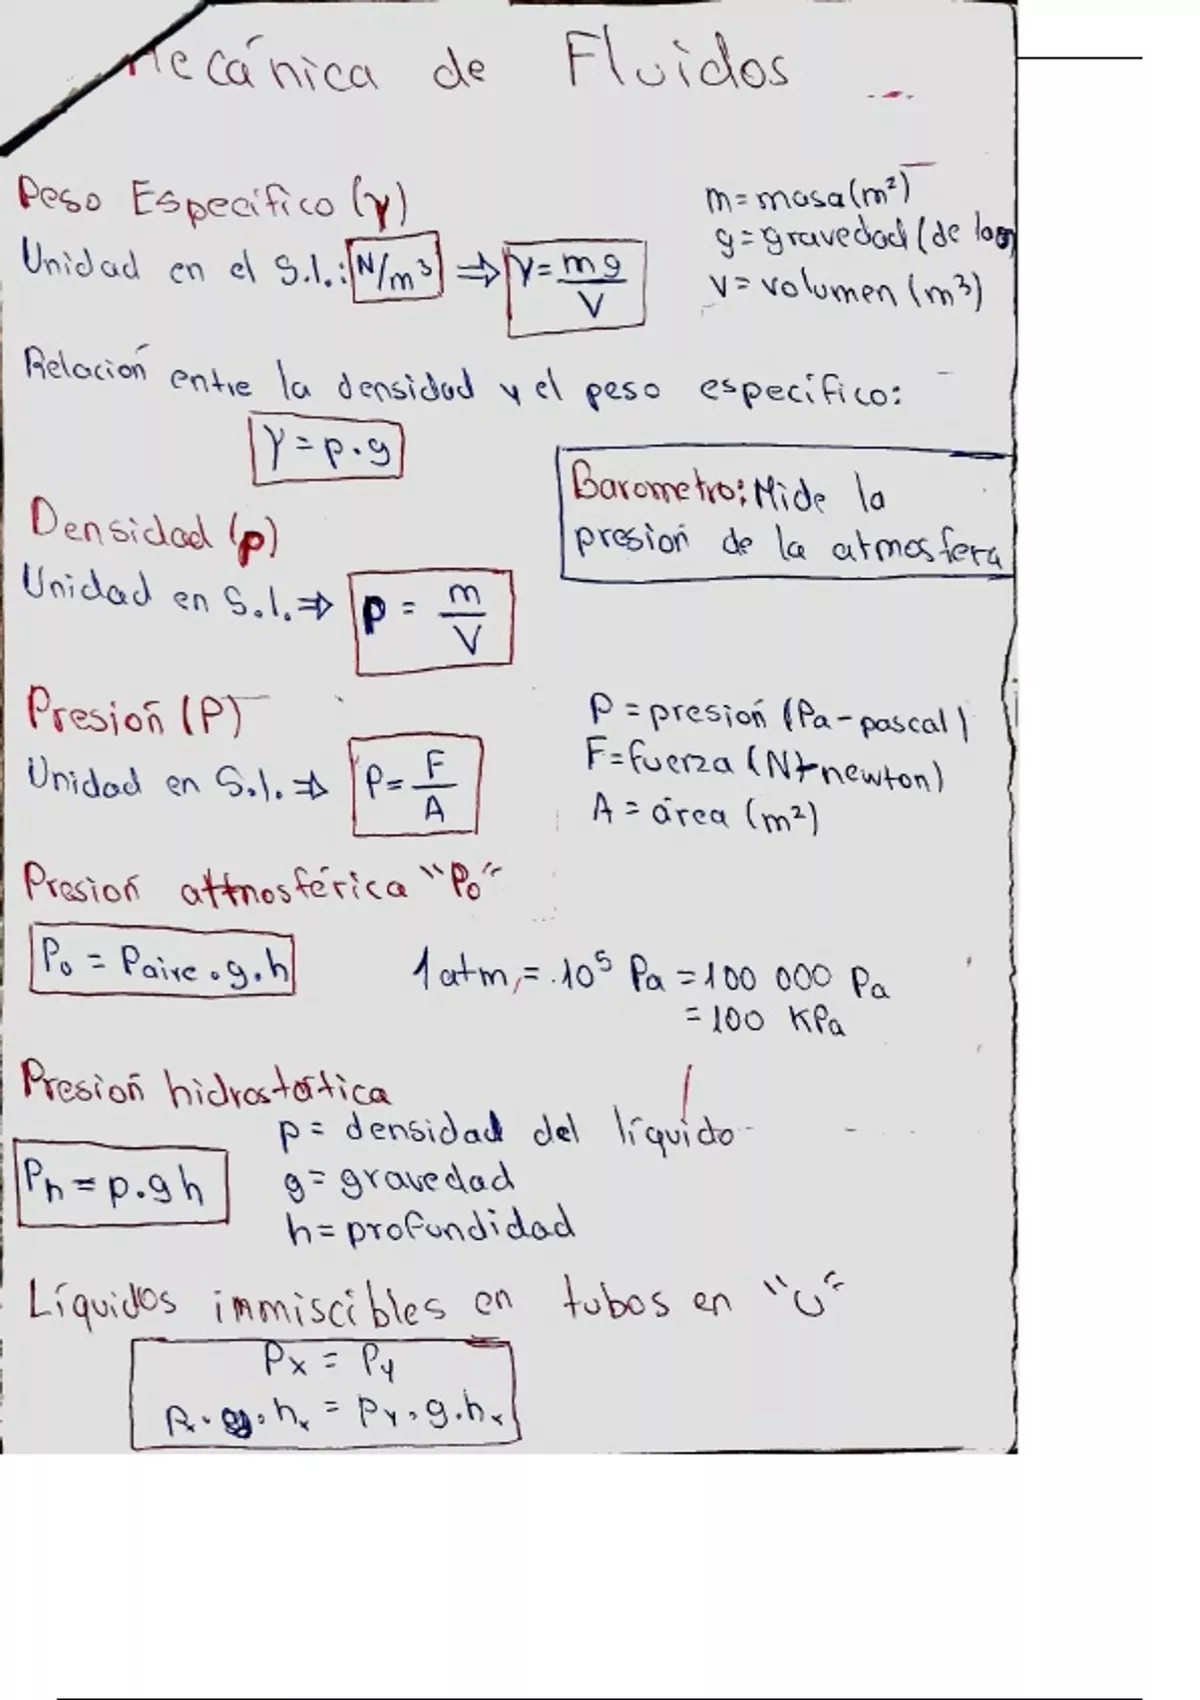 Mecánica de Fluidos
Peso Específico (γ)
Unidad en el S.I.: N/m³ ⇒ γ = mg/V
m = masa (m²)
g = gravedad (de la
v = volumen (m³)
Relación entre la densidad y el peso específico:
γ = p.g
Barometro: Mide la
presión de la atmosfera
Densidad (p)
Unidad en S.I. ⇒ p = m/V
Presión (P)
Unidad en S.I. ⇒ P = F/A
P = presión (Pa-pascal)
F = fuerza (N-newton)
A = área (m²)
Presión atmosférica "P₀"
P₀ = Paire.g.h
1 atm = 10⁵ Pa = 100 000 Pa
= 100 KPa
Presión hidrostática
Ph = p.gh
p = densidad del líquido
g = gravedad
h = profundidad
Líquidos inmiscibles en tubos en "U"
Px = Py
Px.g.hx = Py.g.hx